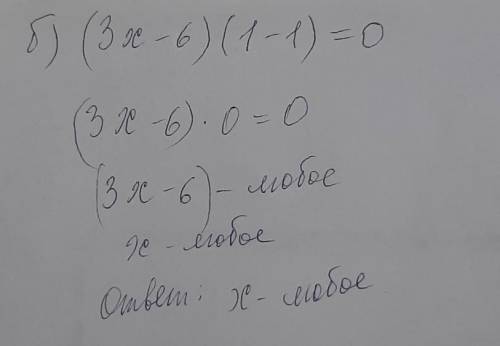 б) (3x-6)(1-1)=0
(3x-6)·0=0
(3x-6)- любое
x- любое
Ответ: x- любое